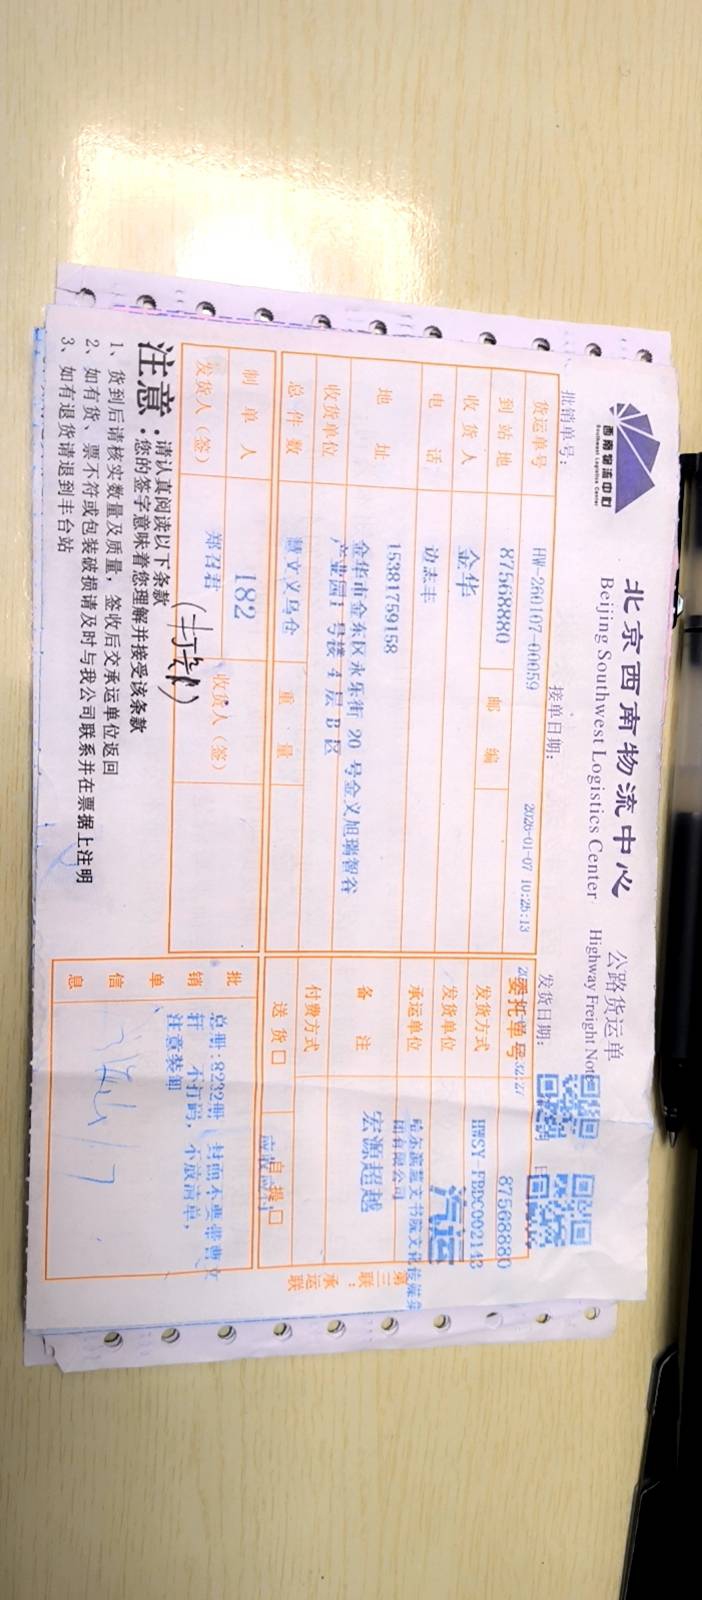 西南物流中心
Southwest Logistics Center
北京西南物流中心
Beijing Southwest Logistics Center
公路货运单
Highway Freight Note
批销单号：
接单日期：
2026-01-07 10:25:13
发货日期：
货运单号
HW-260107-00059
委托单号
87568880
到站地
87568880
邮编
发货方式
HWSY-FBDC002143
收货人
金华
发货单位
汽运
电话
边志丰
承运单位
哈尔滨慧文书院文化传媒
有限公司
15381759158
地址
金华市金东区永乐街 20 号金义旭瑞智谷
产业园1 号楼 4 层 B 区
备注
宏源超越
收货单位
慧文义乌仓
付费方式
总件数
重量
送货 □
自提 □
182
制单人
郑召君
收货人（签）
发货人（签）
批销单信息
总册：8232册
封面不要带曹文
轩
不打码，不放清单，
注意装卸
第三联：承运联
注意：
请认真阅读以下条款
您的签字意味着您理解并接受该条款
1、货到后请核实数量及质量，签收后交承运单位返回
2、如有货、票不符或包装破损请及时与我公司联系并在票据上注明
3、如有退货请退到丰台站